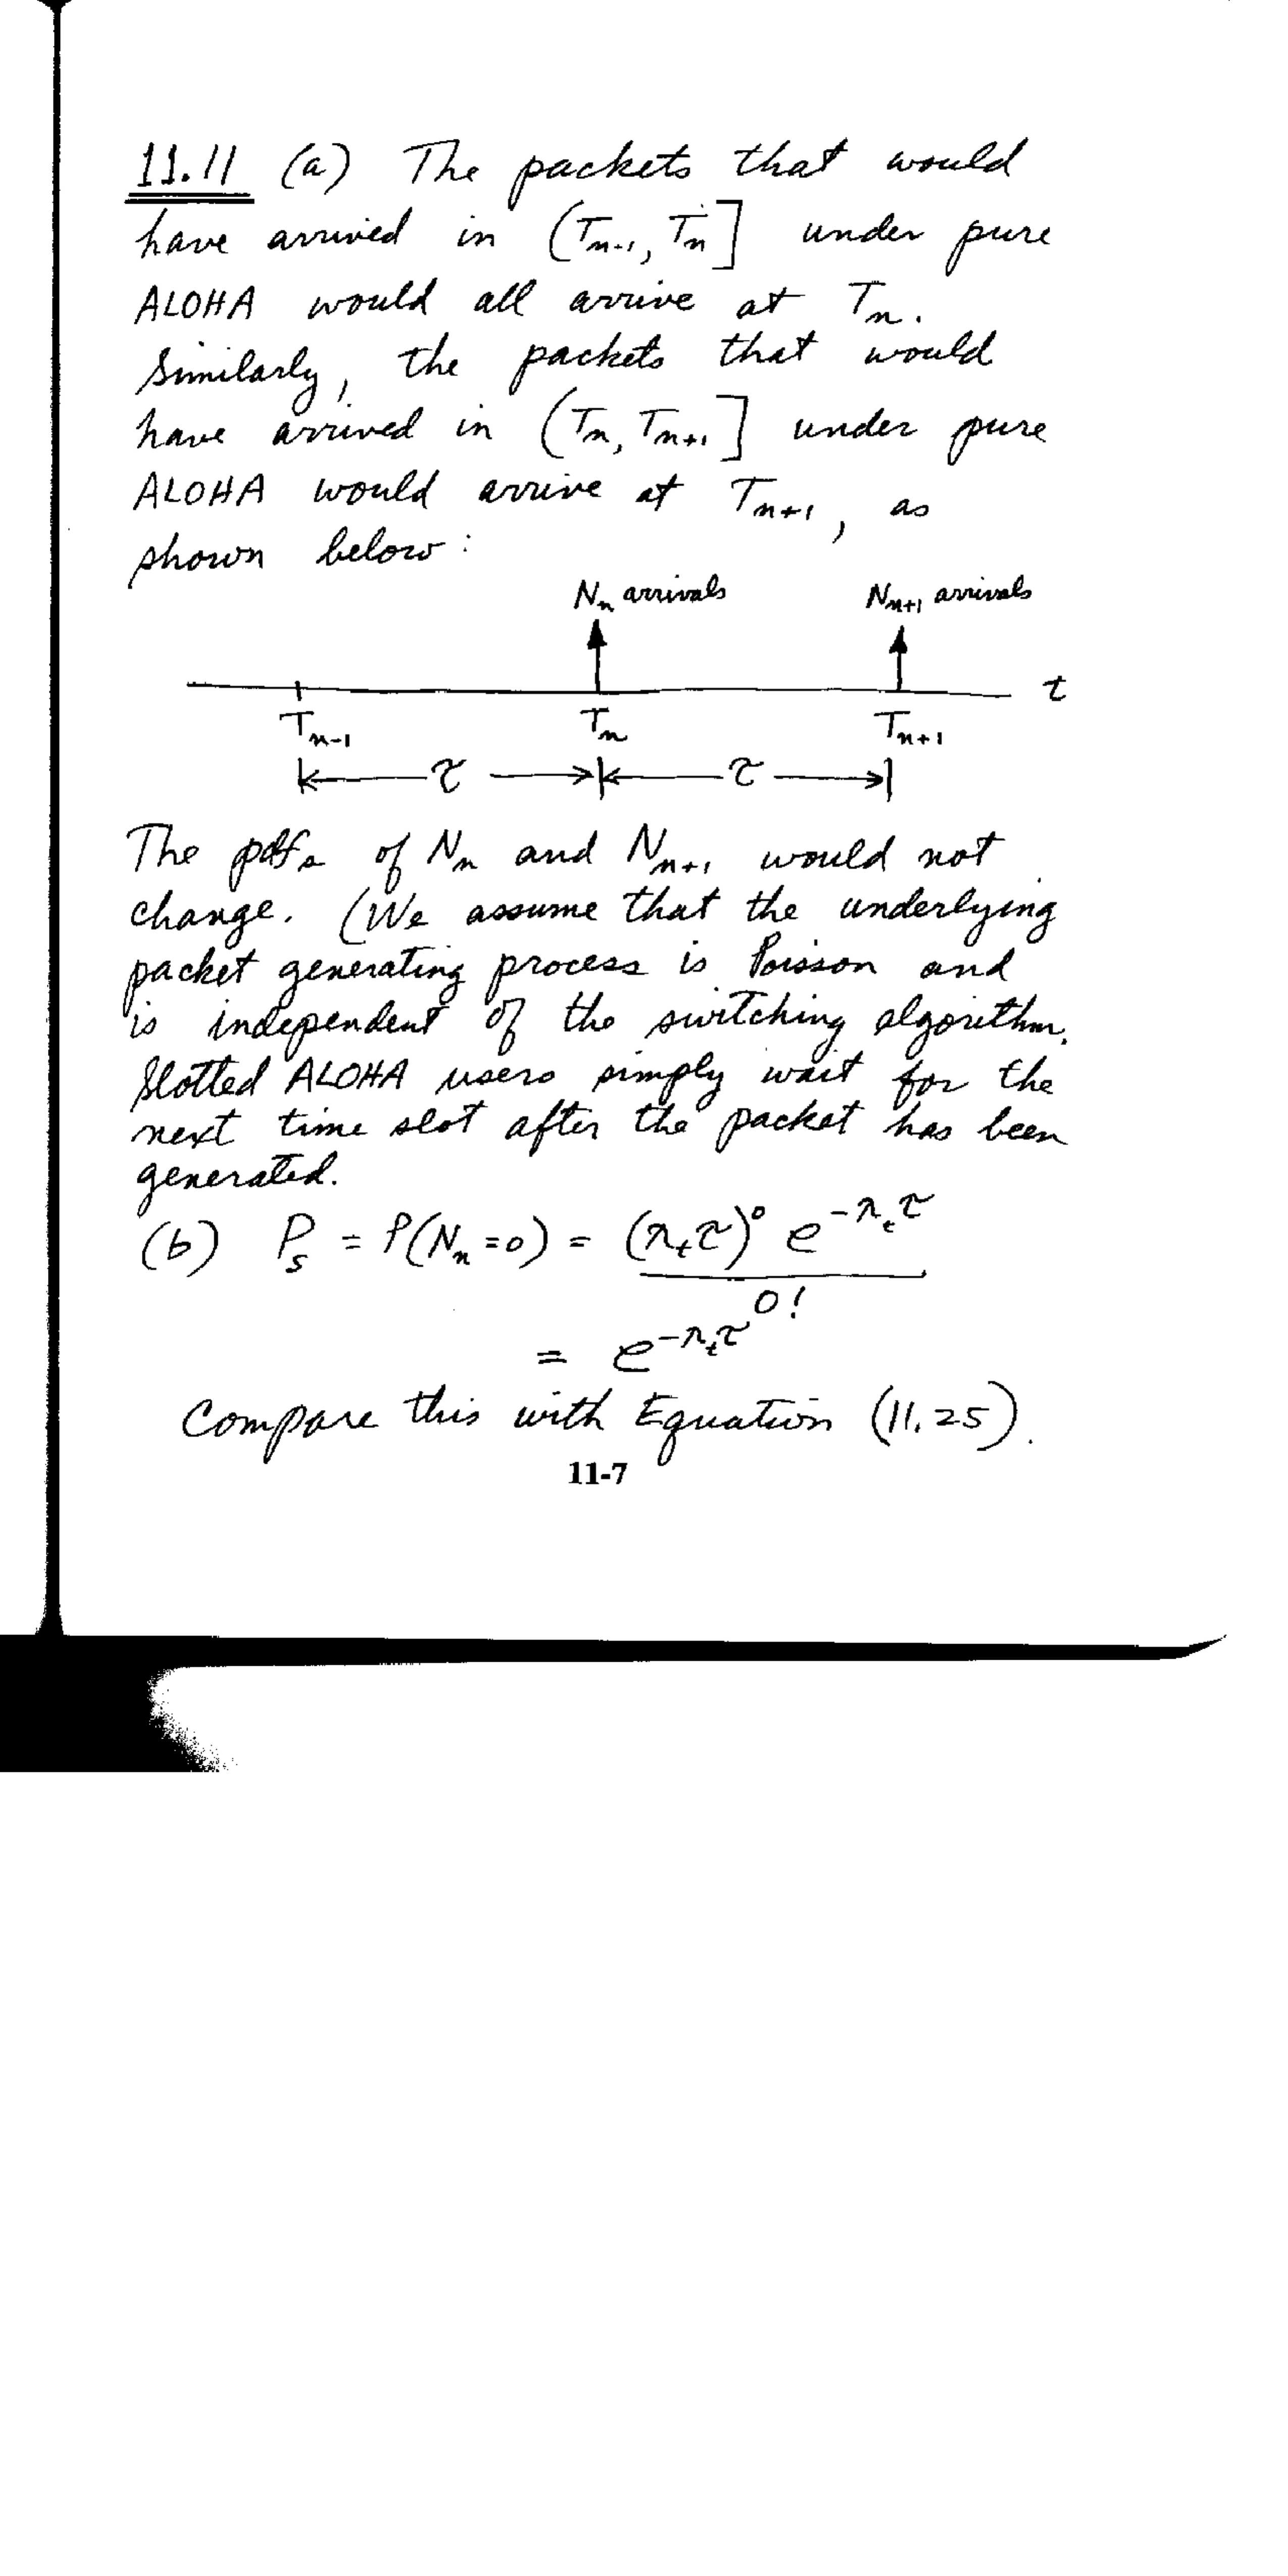 11.11 (a) The packets that would
have arrived in (Tn-1, Tn] under pure
ALOHA would all arrive at Tn.
Similarly, the packets that would
have arrived in (Tn, Tn+1] under pure
ALOHA would arrive at Tn+1, as
shown below:
Nn arrivals Nn+1 arrivals
t
Tn-1 Tn Tn+1
τ τ
The pdfs of Nn and Nn+1 would not
change. (We assume that the underlying
packet generating process is Poisson and
is independent of the switching algorithm.
Slotted ALOHA users simply wait for the
next time slot after the packet has been
generated.
(b) Ps = P(Nn=0) = (λtτ)^0 e^-λtτ
0!
= e^-λtτ
Compare this with Equation (11.25).
11-7